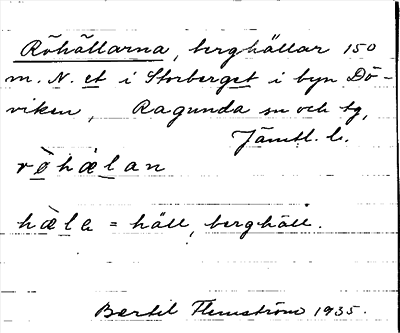 Röhällarna, berghällar 150
m. N. et i Storberget i byn Dö-
viken, Ragunda sn och tg,
Jämtl. l.
røhælan
hæla = häll, berghäll.
Bertil Flemström 1935.